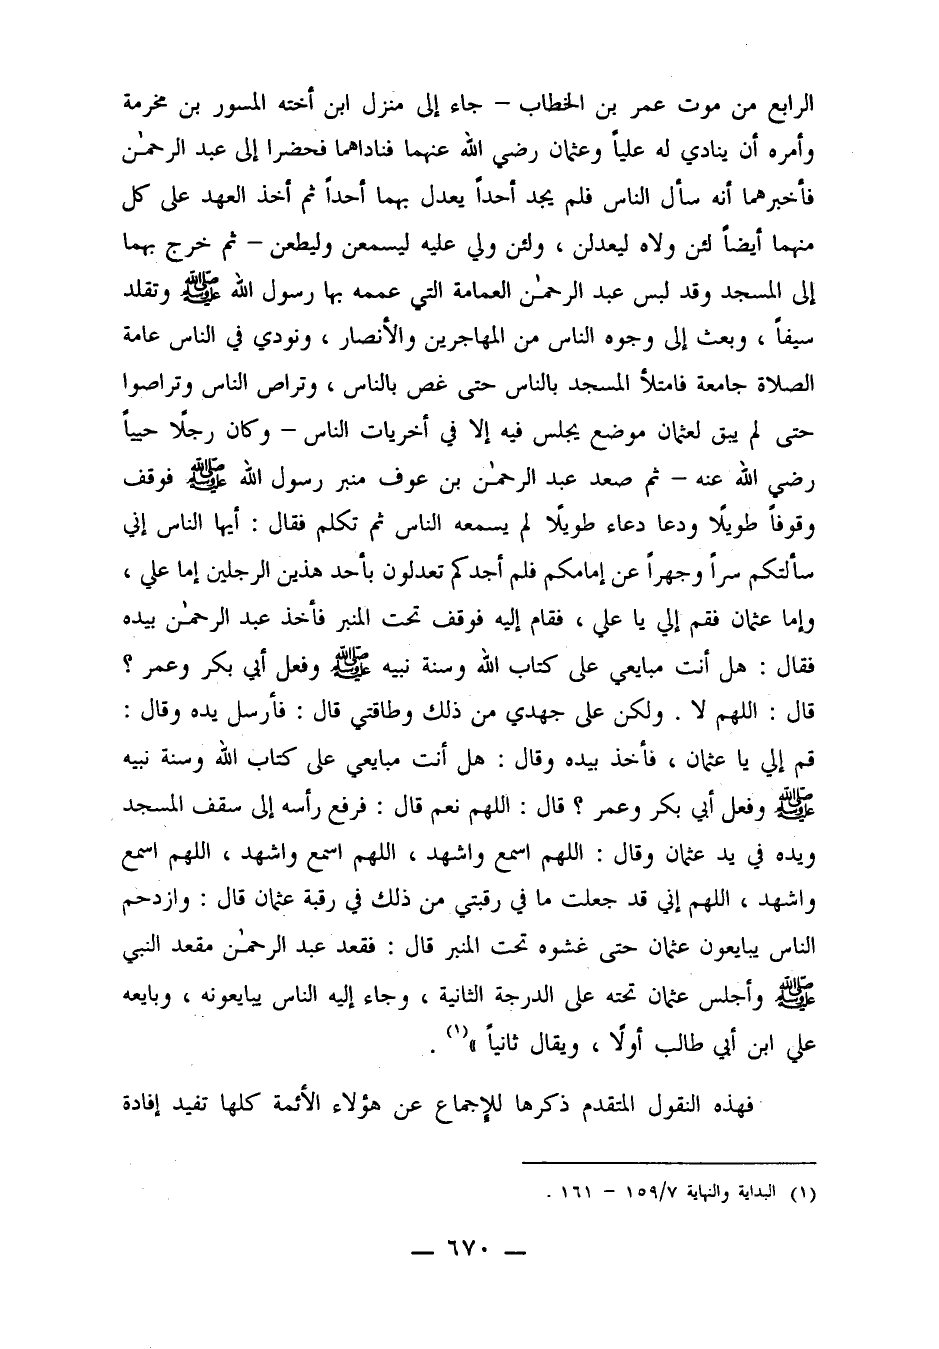 الرابع من موت عمر بن الخطاب – جاء إلى منزل ابن أخته المسور بن مخرمة
وأمره أن ينادي له علياً وعثمان رضي الله عنهما فناداهما فحضرا إلى عبد الرحمٰن
فأخبرهما أنه سأل الناس فلم يجد أحداً يعدل بهما أحداً ثم أخذ العهد على كل
منهما أيضاً لئن ولاه ليعدلن ، ولئن ولي عليه ليسمعن وليطعن – ثم خرج بهما
إلى المسجد وقد لبس عبد الرحمٰن العمامة التي عممه بها رسول الله ﷺ وتقلد
سيفاً ، وبعث إلى وجوه الناس من المهاجرين والأنصار ، ونودي في الناس عامة
الصلاة جامعة فامتلأ المسجد بالناس حتى غص بالناس ، وتراص الناس وتراصوا
حتى لم يبق لعثمان موضع يجلس فيه إلا في أخريات الناس – وكان رجلًا حيياً
رضي الله عنه – ثم صعد عبد الرحمٰن بن عوف منبر رسول الله ﷺ فوقف
وقوفاً طويلًا ودعا دعاء طويلًا لم يسمعه الناس ثم تكلم فقال : أيها الناس إني
سألتكم سراً وجهراً عن إمامكم فلم أجدكم تعدلون بأحد هذين الرجلين إما علي ،
وإما عثمان فقم إلي يا علي ، فقام إليه فوقف تحت المنبر فأخذ عبد الرحمٰن بيده
فقال : هل أنت مبايعي على كتاب الله وسنة نبيه ﷺ وفعل أبي بكر وعمر ؟
قال : اللهم لا . ولكن على جهدي من ذلك وطاقتي قال : فأرسل يده وقال :
قم إلي يا عثمان ، فأخذ بيده وقال : هل أنت مبايعي على كتاب الله وسنة نبيه
ﷺ وفعل أبي بكر وعمر ؟ قال : اللهم نعم قال : فرفع رأسه إلى سقف المسجد
ويده في يد عثمان وقال : اللهم اسمع واشهد ، اللهم اسمع واشهد ، اللهم اسمع
واشهد ، اللهم إني قد جعلت ما في رقبتي من ذلك في رقبة عثمان قال : وازدحم
الناس يبايعون عثمان حتى غشوه تحت المنبر قال : فقعد عبد الرحمٰن مقعد النبي
ﷺ وأجلس عثمان تحته على الدرجة الثانية ، وجاء إليه الناس يبايعونه ، وبايعه
علي ابن أبي طالب أولًا ، ويقال ثانياً »(١) .
فهذه النقول المتقدم ذكرها للإجماع عن هؤلاء الأئمة كلها تفيد إفادة
(١) البداية والنهاية ١٥٩/٧ – ١٦١ .
— ٦٧٠ —